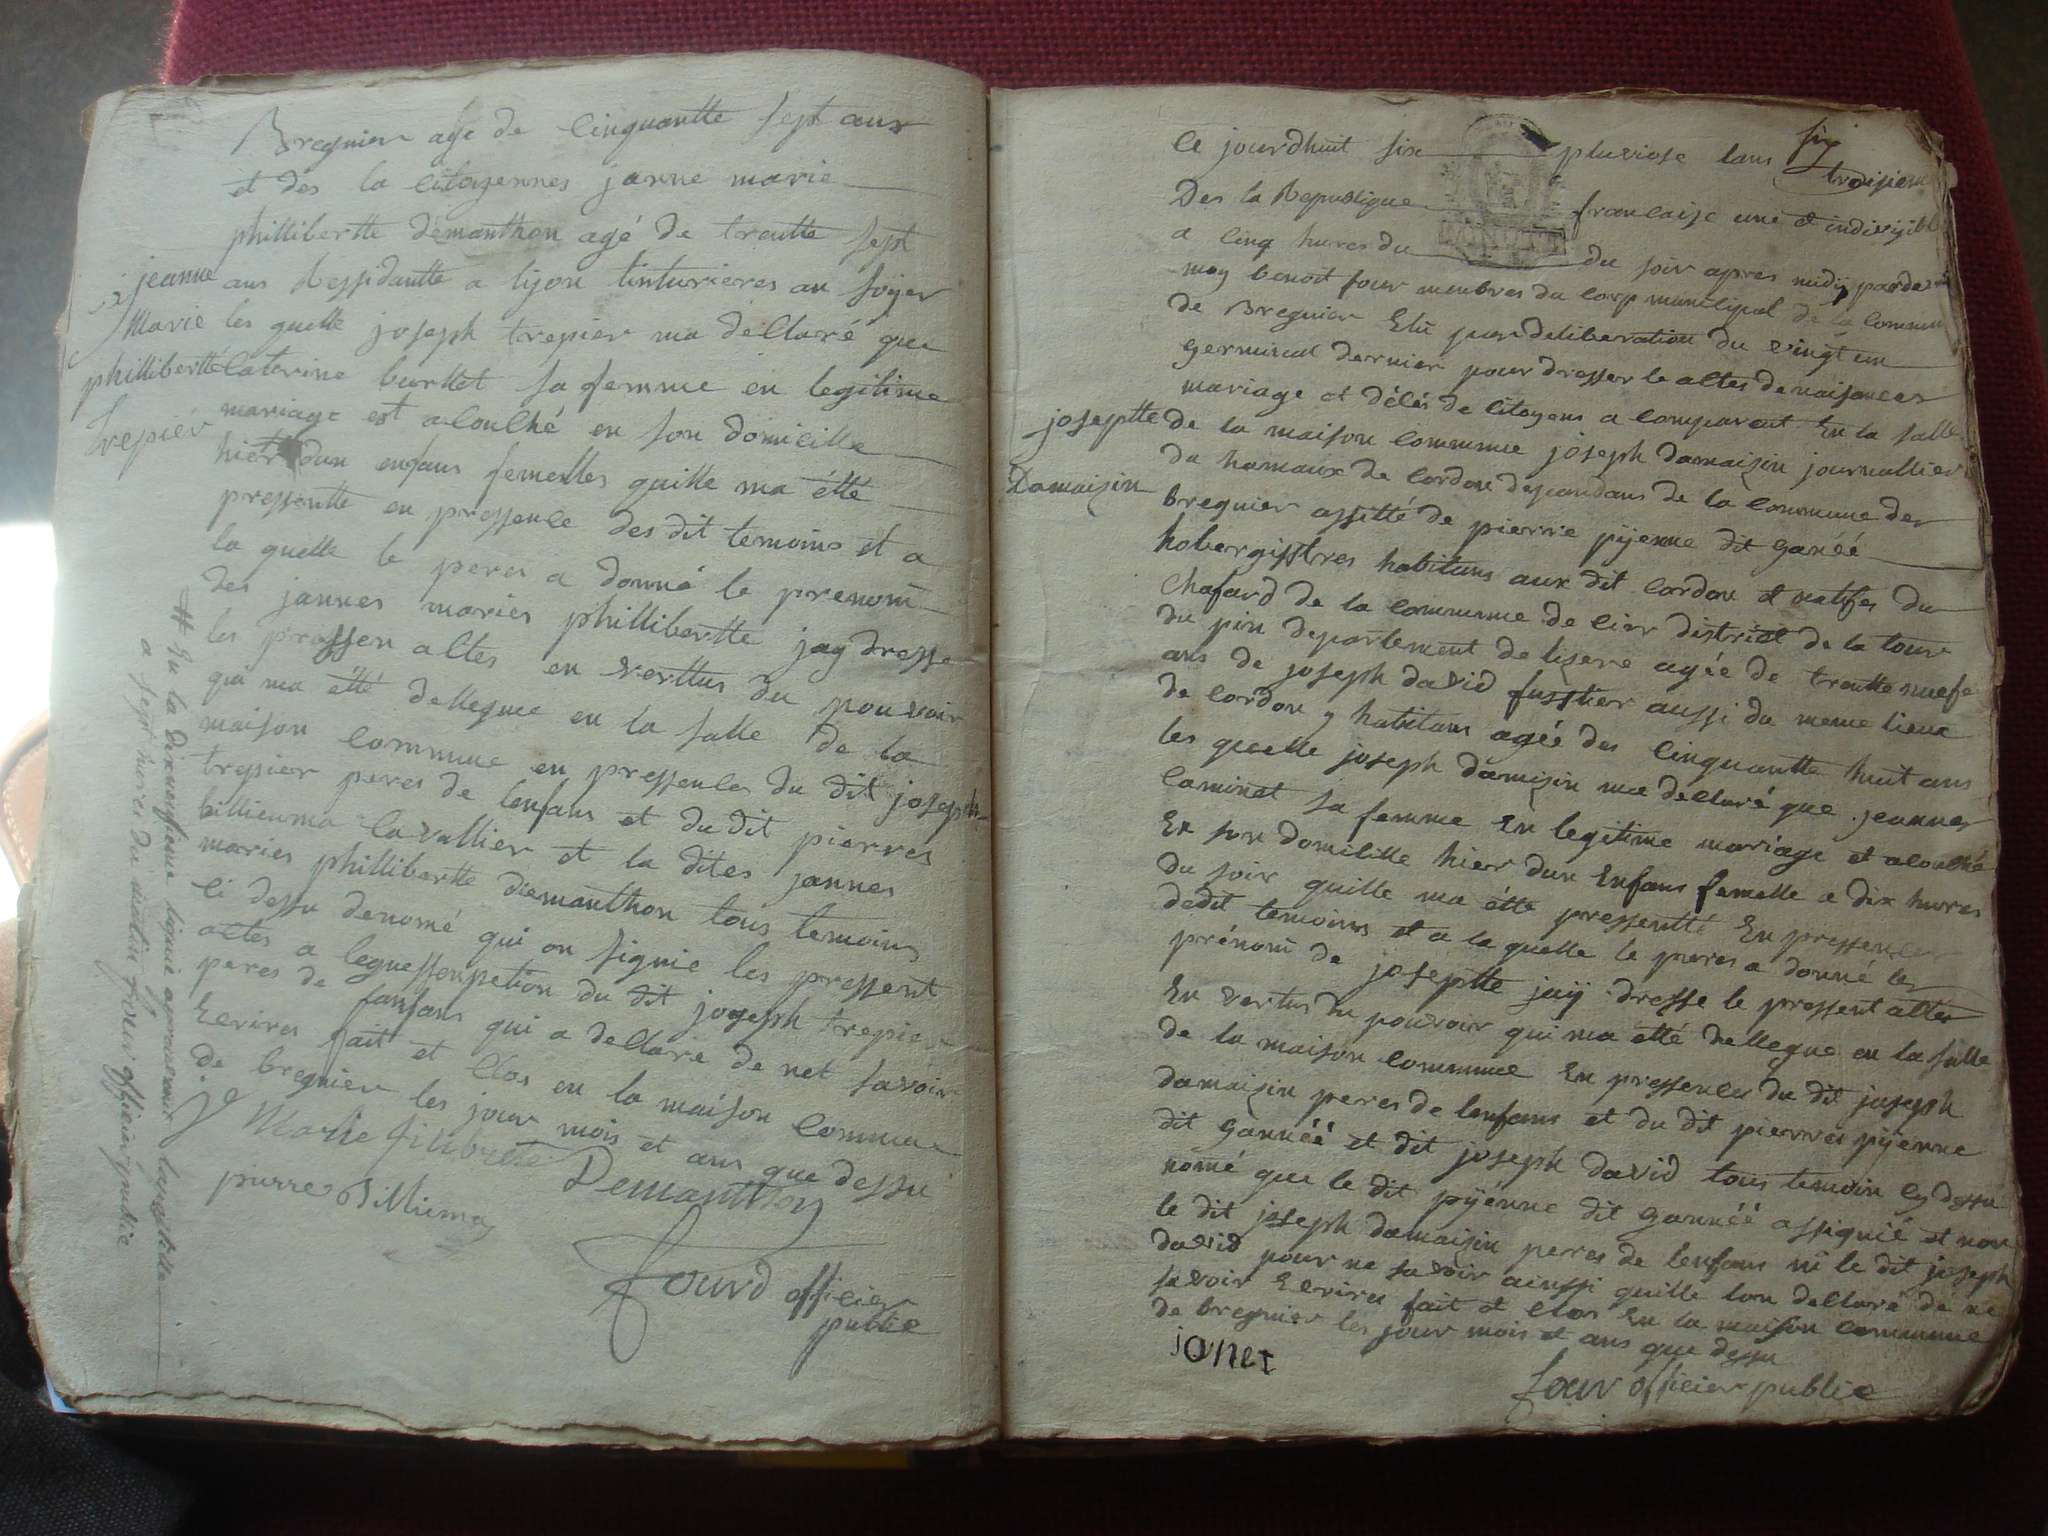 Bregnier age de cinquantte sept ans
et des la citoyennes janne marie
phillibertte demanthon agé de trentte sept
ans Ressidantte a lijon tinturieres au soyer
les quelle joseph trepier ma decllaré que
caterine burttet sa femme en legitime
mariage est acouché en son domicille
hier dun enfans femelles quille ma étté
pressentte en pressence des dit temoins et a
la quelle le peres a donné le prenom
des jannes maries phillibertte jay dresse
les pressen actes en verttus du pouvoir
qui ma étté dellegue en la salle de la
maison commune en pressences du dit joseph
trepier peres de lenfans et du dit pierres
billiema cavallier et la dites jannes
maries phillibertte diemanthon tous temoins
ci dessu denomé qui on signie les pressent
actes a lequesseuption du dit joseph trepier
peres de lanfans qui a decllare de net savoir
Ecrires fait et clos en la maison commune
de bregnier les jour mois et ans que dessu
je Marie filiberte Demantthon
pierre Billiema
fourd officier
public
jeanne
Marie
phillibertte
Trepier
# En la dixneufieme lignie apres le mot
a sept hures du matin four officier public
six
Ce jourdhuit six pluviose lans troisieme
Des la Republique francaise une et indivisible
a cinq hures du du soir apres midy pardevant
moy benoit four menbres du corp municipal de la commune
de Bregnier Elu par deliberation du vingt un
germinal dernier pour dresser le actes de naisances
mariage et décés de citoyens a comparent En la salle
de la maison commune joseph damaisin journallier
du hamaux de cordon depandans de la commune des
bregnier assitté de pierre pijenne dit ganéé
hobergisstres habitans aux dit cordon et natifes du
Chafard de la commune de cier district de la tour
du pin departement de lisere agée de trentte neufe
ans de joseph david fusstier aussi du meme lieux
de cordon y habitans agée des cinquantte huit ans
les quelle joseph damisin ma decllaré que jeannes
caminet sa femme En legitime mariage et acouché
En son domicille hier dun Enfans femelle a dix hures
du soir quille ma étté pressentté En pressences
dedit temoins et a la quelle le peres a donné les
prénom de joséptte jaij dresse le pressent actes
En vertus du pouvoir qui ma etté dellegue en la salle
de la maison commune En pressences du dit joseph
damaisin peres de lenfans et du dit pierres pijenne
dit gannéé et dit joseph david tous temoin cy dessu
nomé que le dit pijenne dit gannéé assignié et non
le dit joseph damaisin peres de lenfans ni le dit joseph
david pour ne savoir ainssi quille lon decllaré de ne
savoir Ecrires fait et clos En la maison commune
de bregnier les jour mois et ans que dessu
joseptte
Damaisin
four officier public